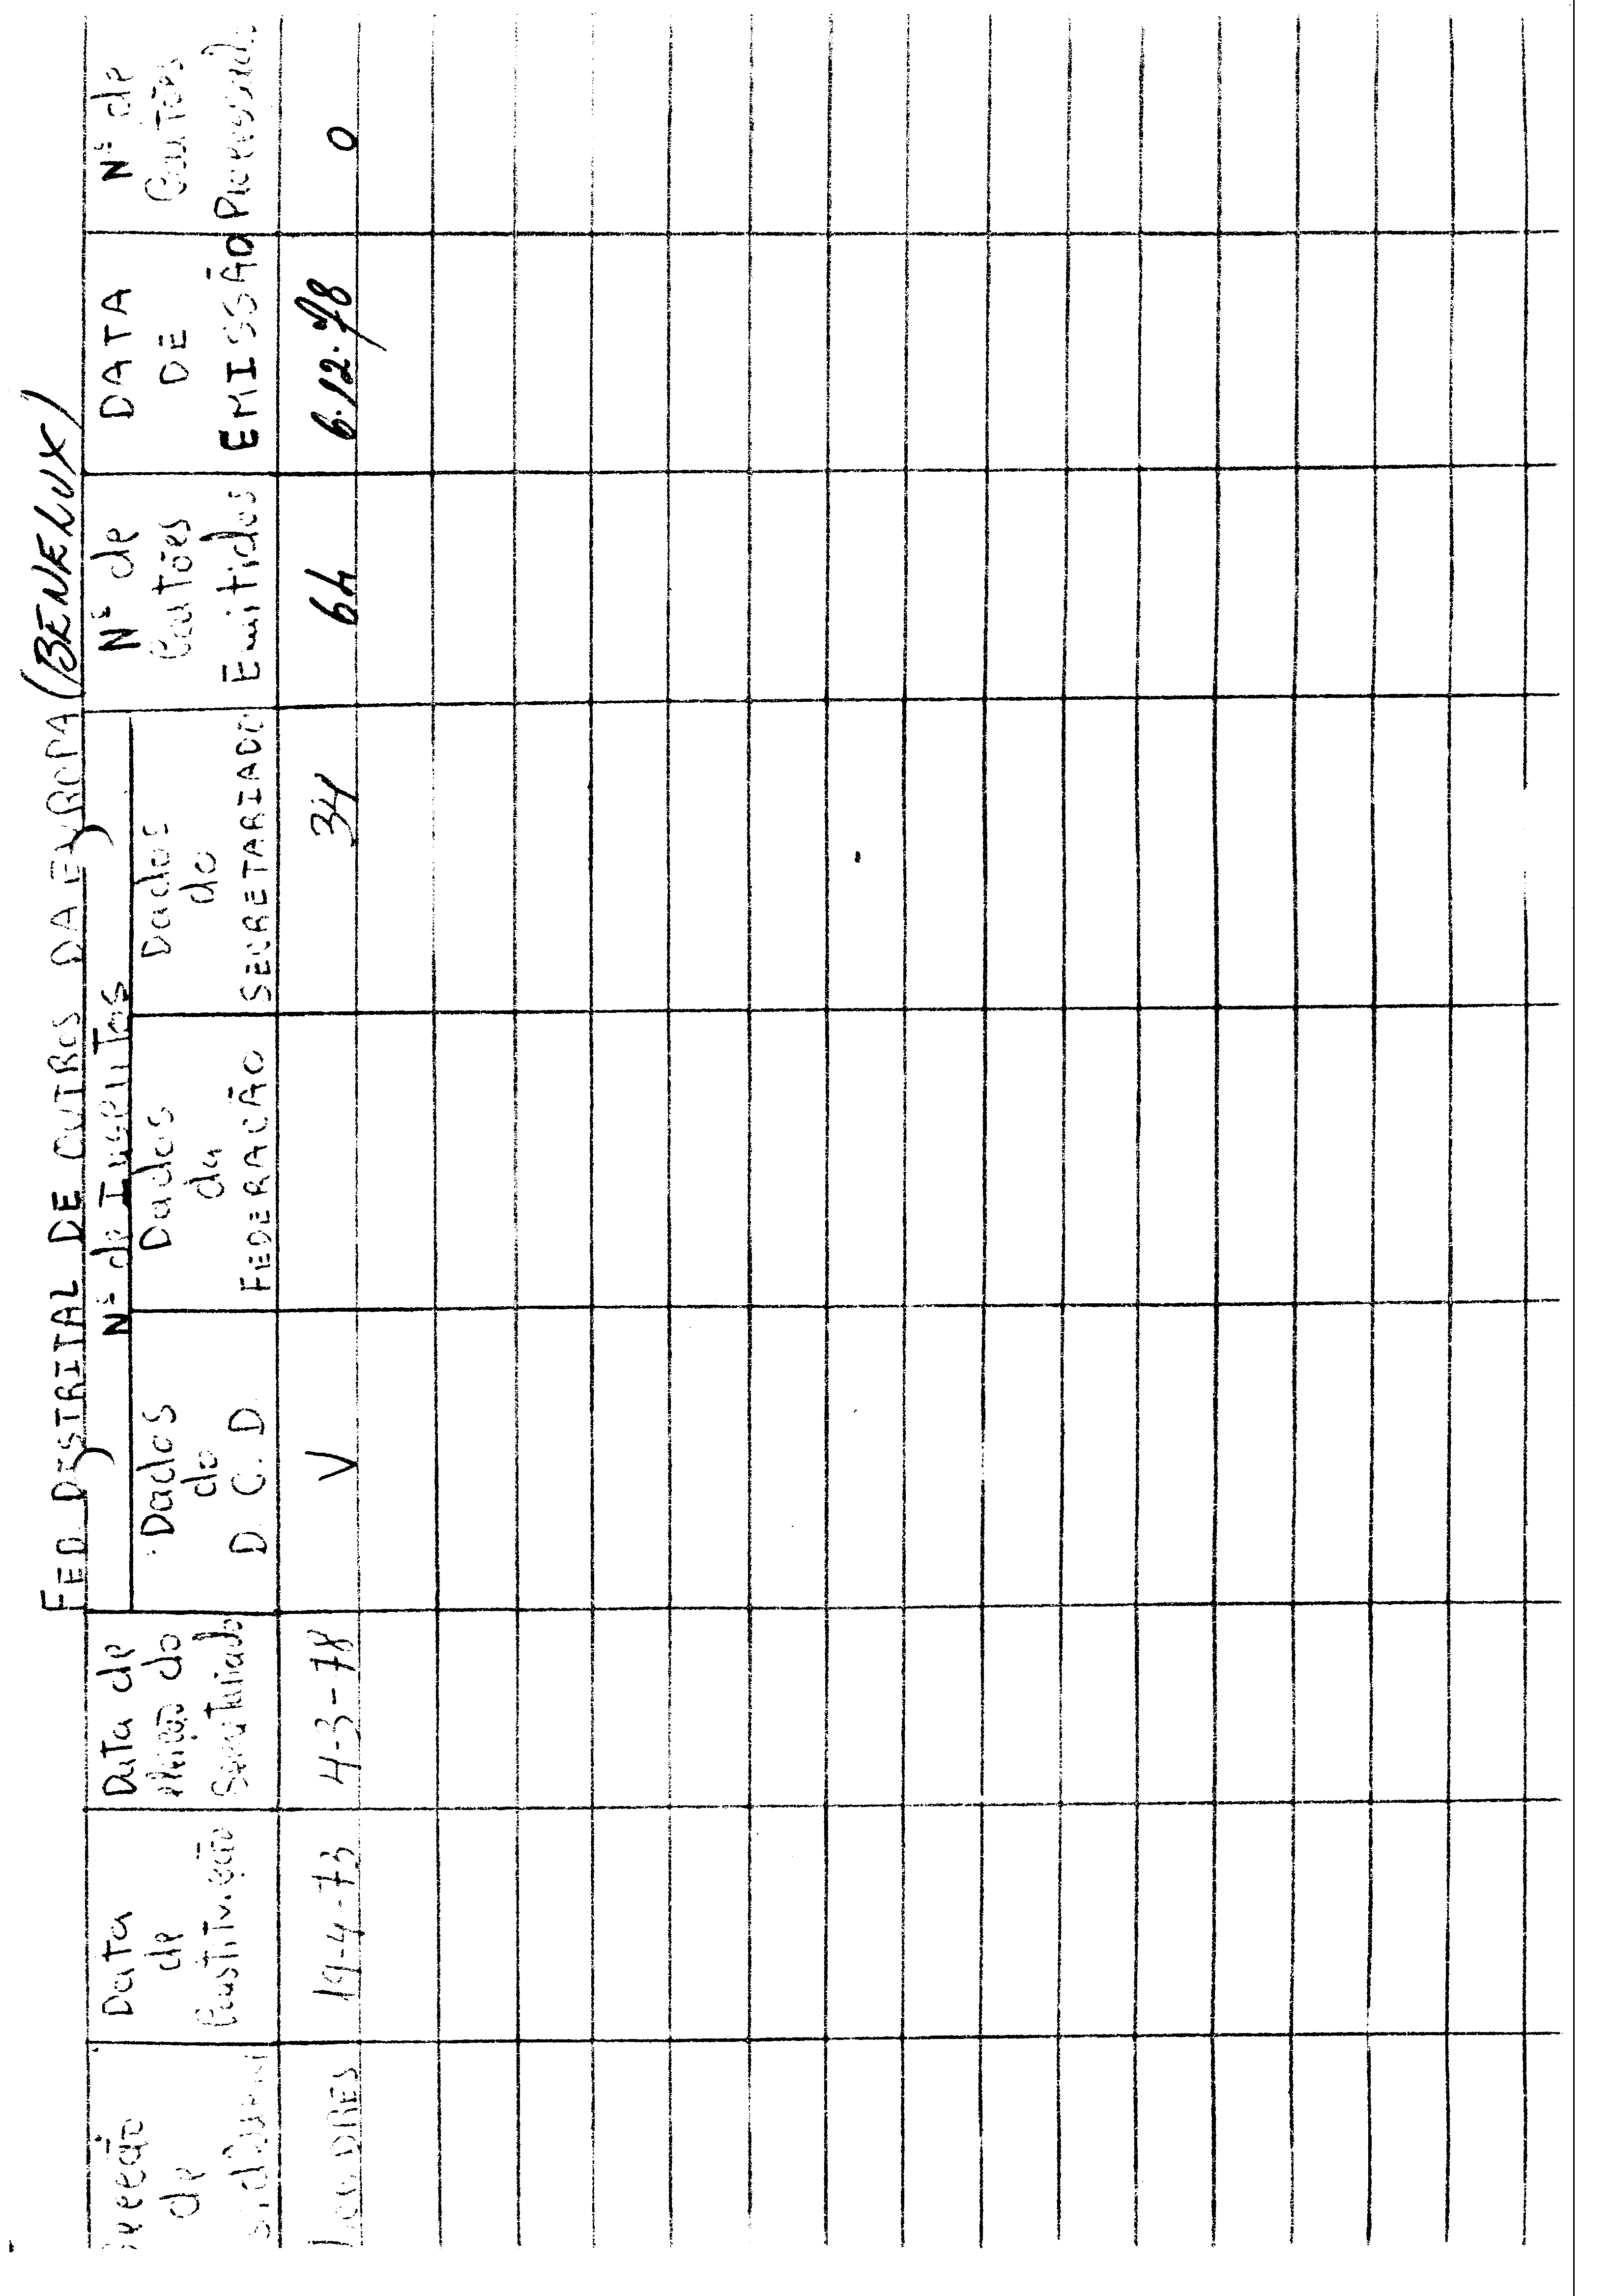 FED DESTRITAL DE OUTROS DA EUROPA (BENELUX)
Secção de
Data de Constituição
Data de eleição do Secretariado
Nº de Inscritos
Dados do D.C.D
Dados da FEDERAÇÃO
Dados do SECRETARIADO
Nº de Cartões Emitidos
DATA DE EMISSÃO
Nº de Cartões
LONDRES 19-4-73 4-3-78 V 34 64 6.12.78 0